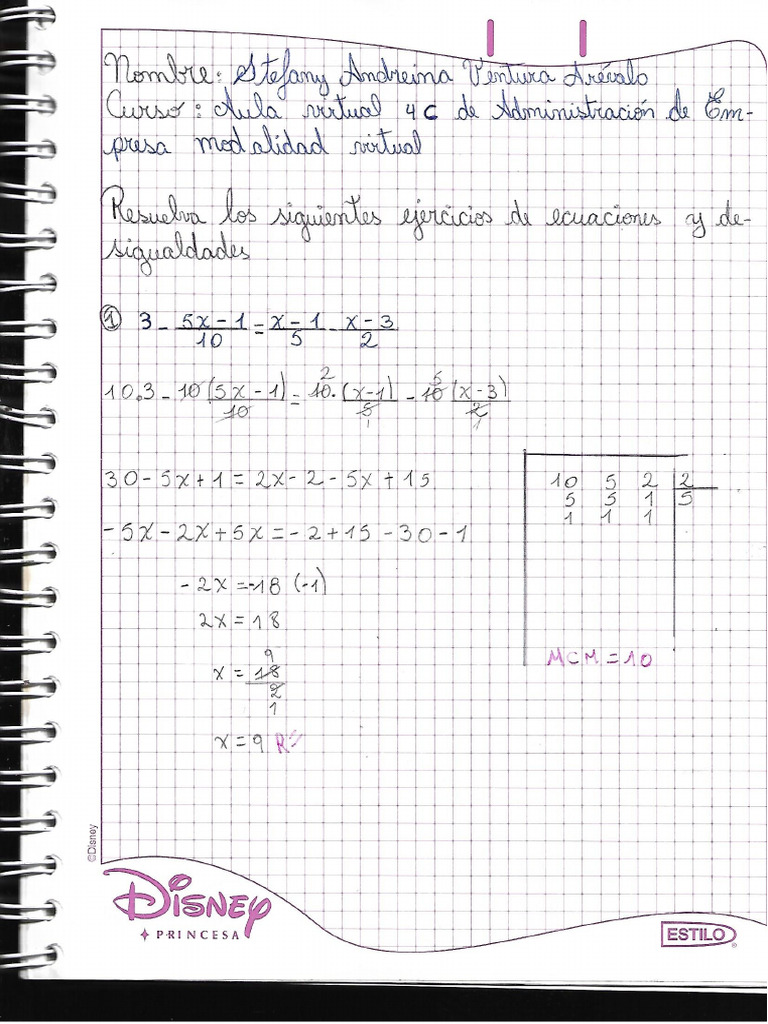 Nombre: Stefany Andreina Ventura Arévalo
Curso: Aula virtual 4C de Administración de Em-
presa modalidad virtual
Resuelva los siguientes ejercicios de ecuaciones y de-
sigualdades
① 3 - (5x-1)/10 = (x-1)/5 - (x-3)/2
10.3 - 10(5x-1)/10 = 10.(x-1)/5 - 10(x-3)/2
2 5
1 1
30-5x+1 = 2x-2-5x+15
-5x-2x+5x=-2+15-30-1
-2x=-18 (-1)
2x=18
x = 18/2
9
1
x=9 R//
10 5 2 | 2
5 5 1 | 5
1 1 1
MCM=10
©Disney
DISNEY
PRINCESA
ESTILO®